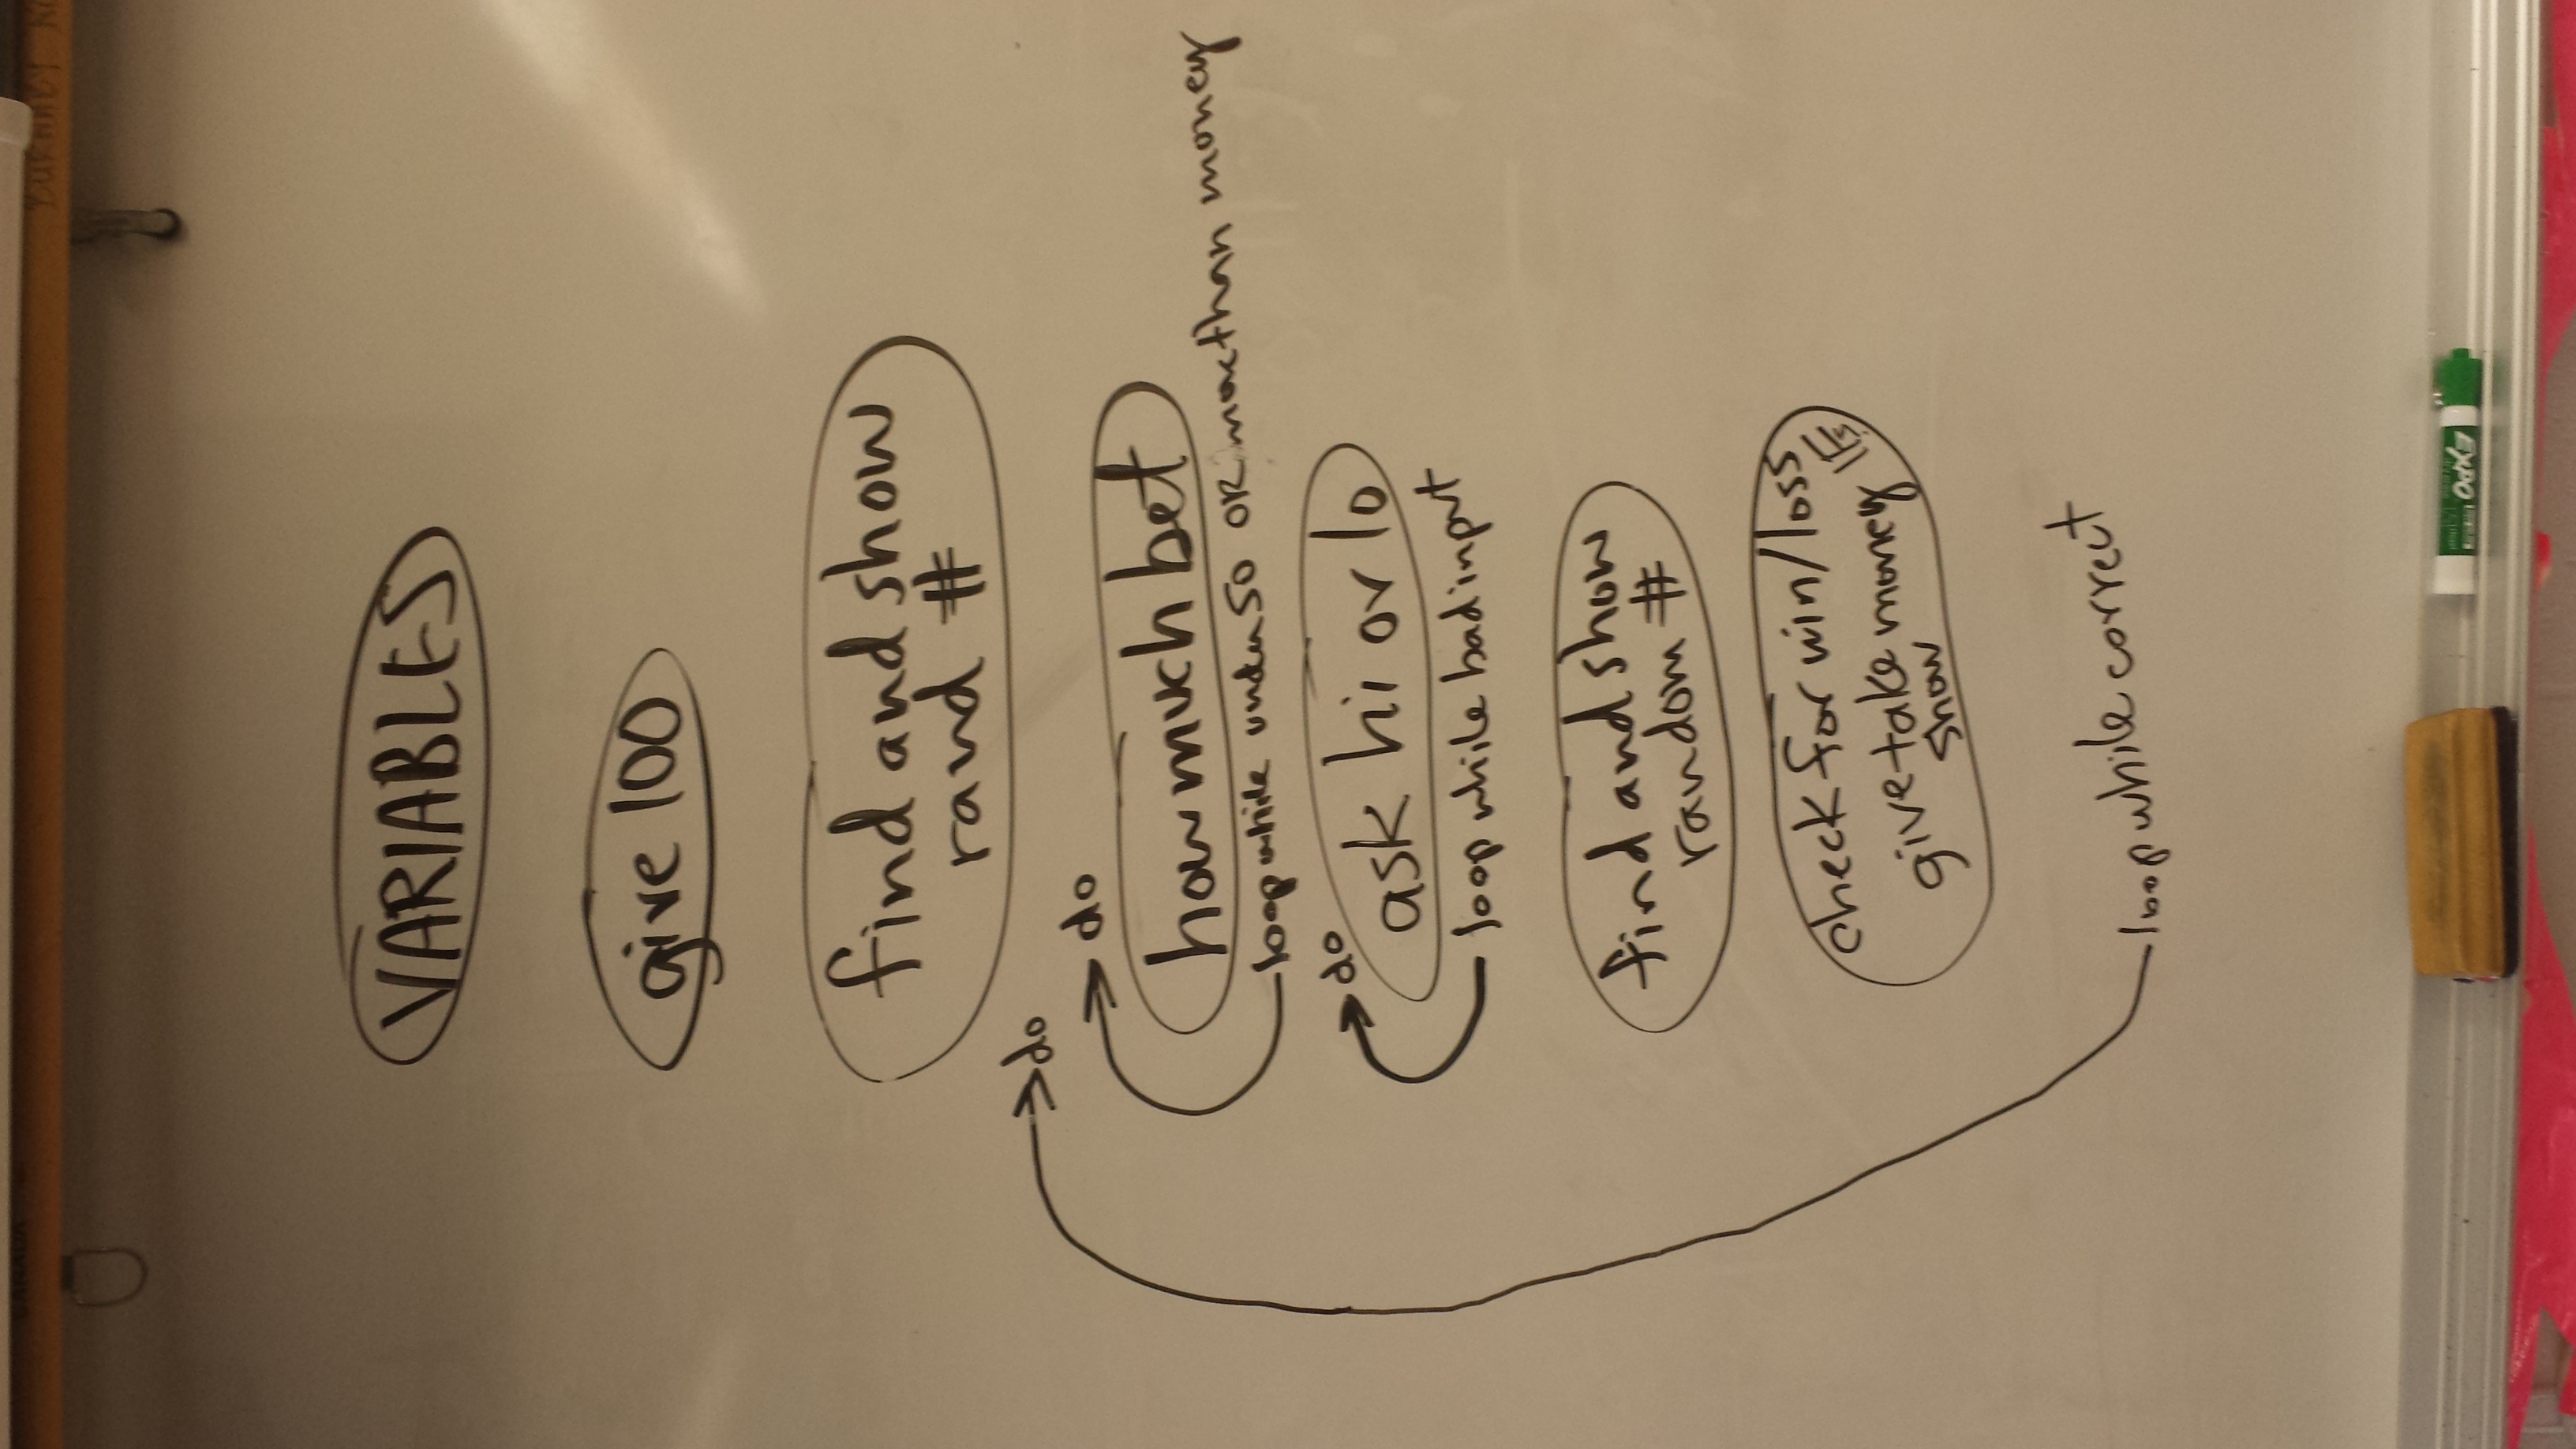 VARIABLES
give 100
find and show
rand #
do
do
how much bet
loop while under 50 OR more than money
do
ask hi or lo
loop while bad input
find and show
random #
check for win/loss
give take money IFs
give show
loop while correct
EXPO